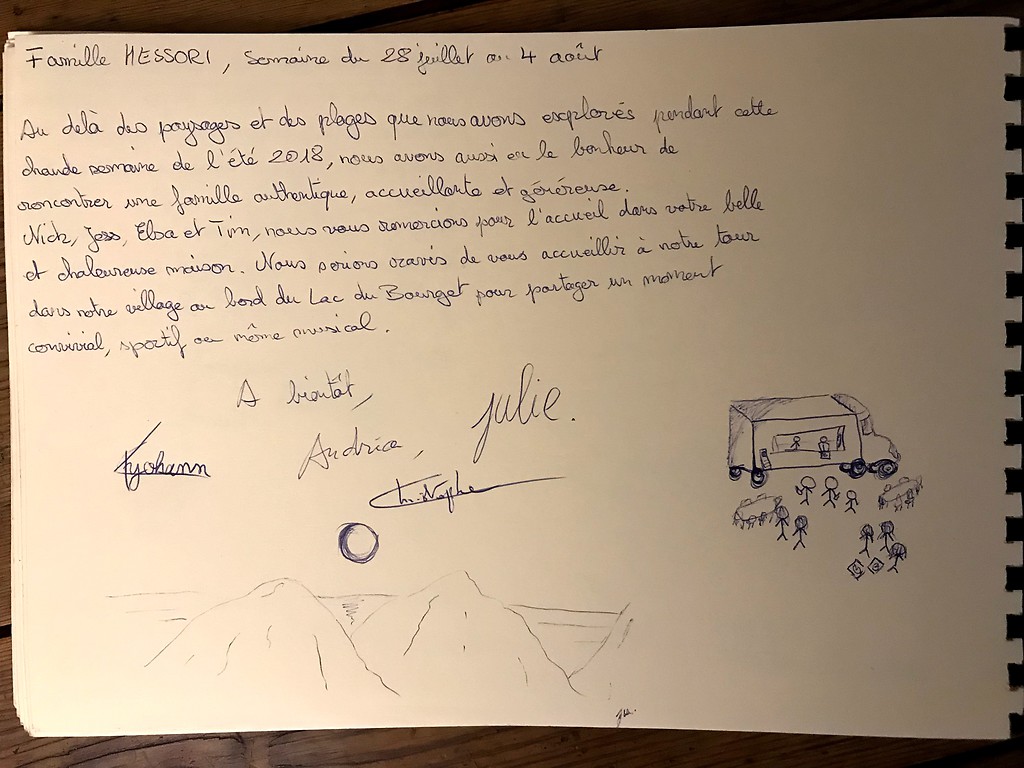 Famille MESSORI, Semaine du 28 juillet au 4 août
Au delà des paysages et des plages que nous avons explorés pendant cette
chaude semaine de l'été 2018, nous avons aussi eu le bonheur de
rencontrer une famille authentique, accueillante et généreuse.
Nick, Jess, Elsa et Tim, nous vous remercions pour l'accueil dans votre belle
et chaleureuse maison. Nous serions ravis de vous accueillir à notre tour
dans notre village au bord du Lac du Bourget pour partager un moment
convivial, sportif ou même musical.
A bientôt,
julie.
Audrice,
yohann
Christophe